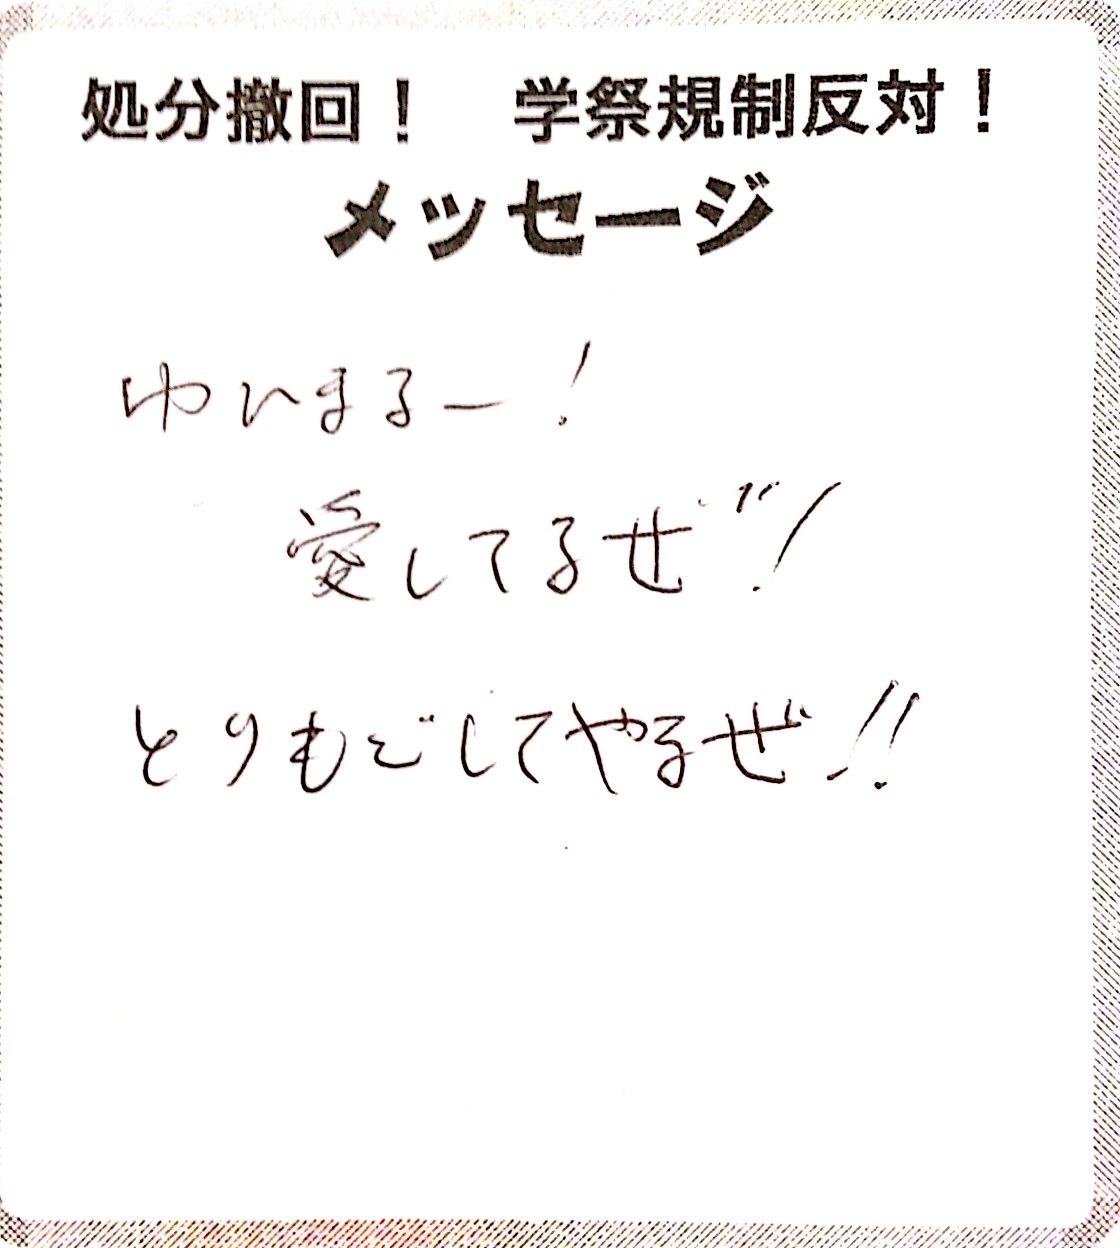 処分撤回！　学祭規制反対！
メッセージ
ゆいまるー！
愛してるぜ！
とりもどしてやるぜ！！